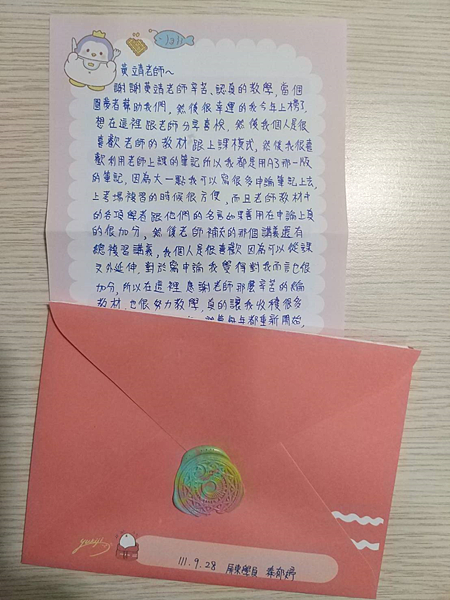 黃靖老師～
謝謝黃靖老師辛苦、認真的教學，當個
圖書者幫助我們，然後很幸運的我今年上榜了，
想在這裡跟老師分享喜悅，然後我個人是很
喜歡老師的教材跟上課模式，然後我很喜
歡利用老師上課的筆記所以我都是用A3那一版
的筆記，因為大一點我可以寫很多申論筆記上去，
上考場複習的時候很方便，而且老師教材中
的各項學者跟他們的名言如果善用在申論上真
的很加分，然後老師補充的那個講義還有
總複習講義，我個人是很喜歡因為可以從課
文外延伸，對於寫申論我覺得對我而言也很
加分，所以在這裡感謝老師那麼辛苦的編
教材，也很努力教學，真的讓我收穫很多
都重新開始，
111.9.28 屏東學員